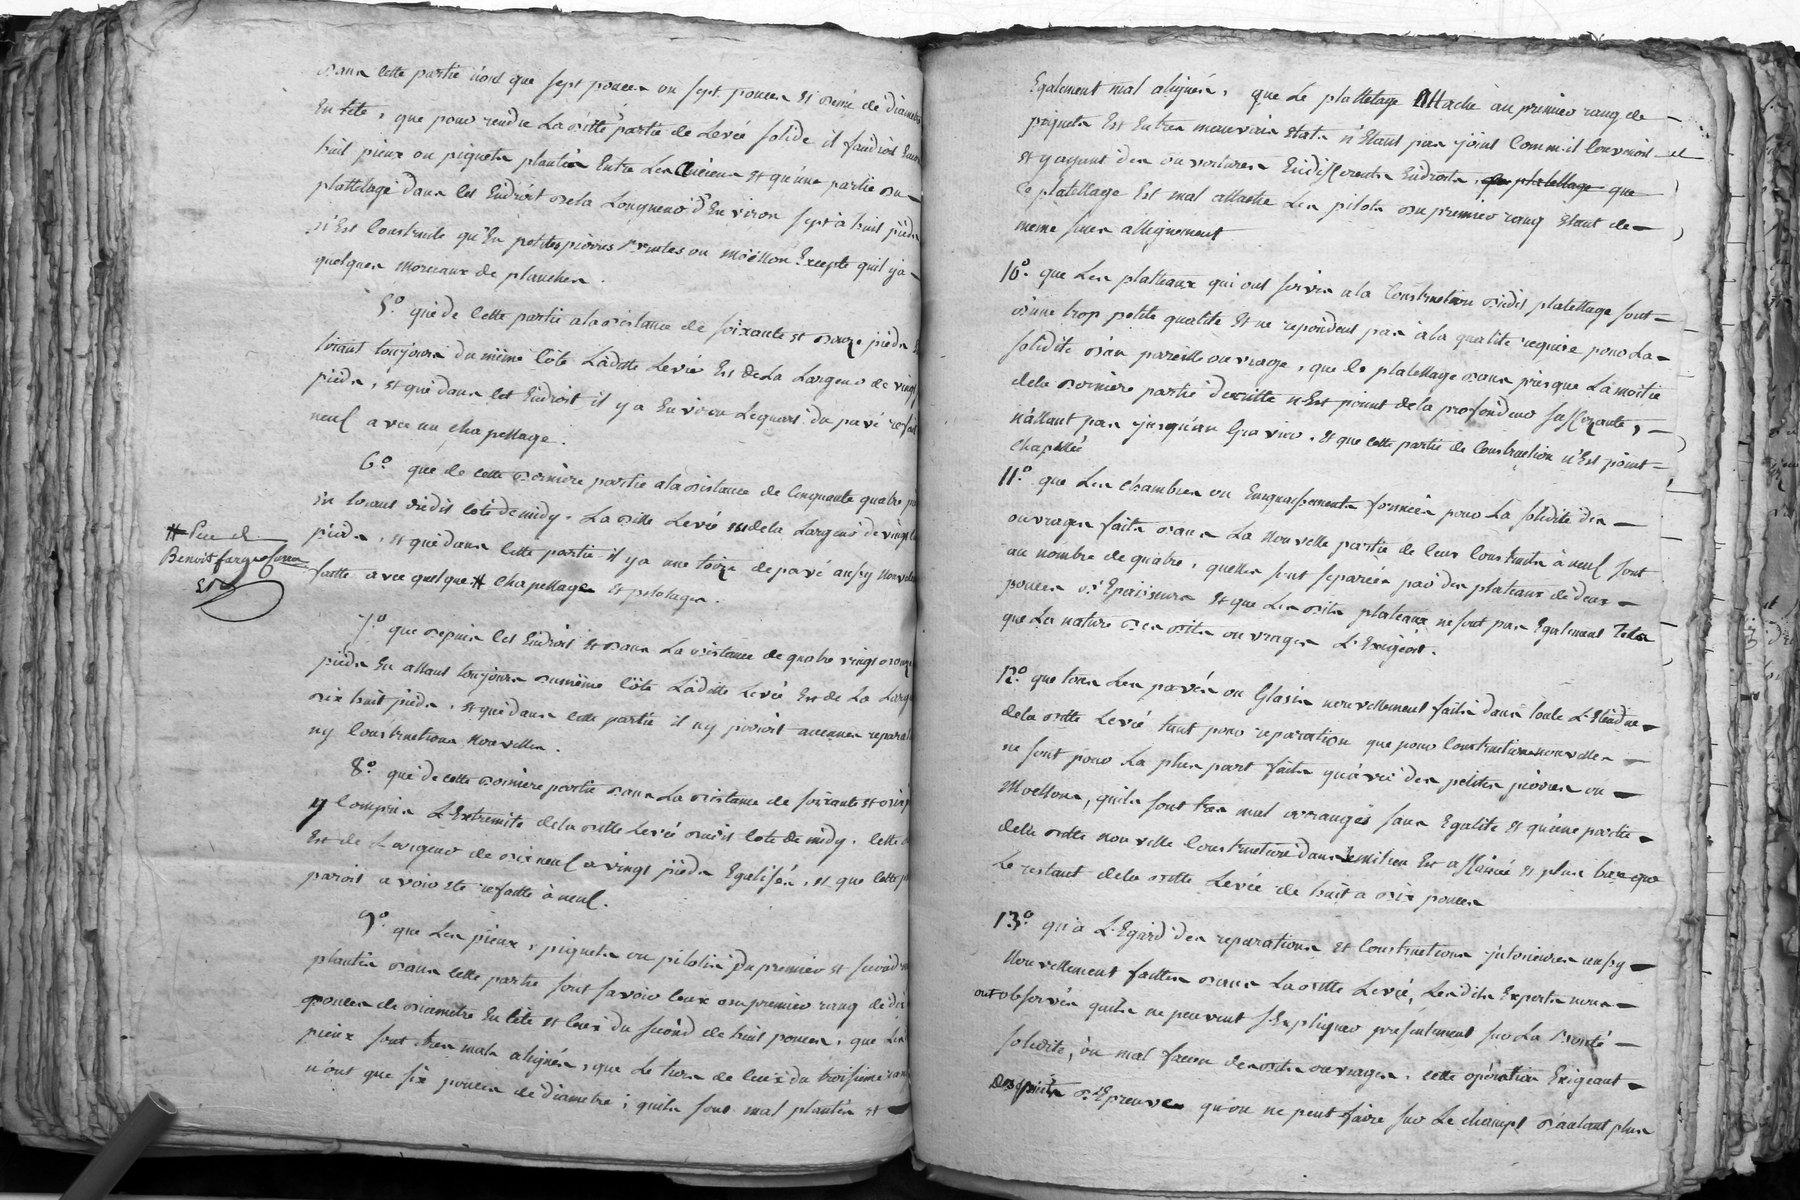 dans cette partie n'ont que sept pouces ou sept pouces et demi de diametre
En tete, que pour rendre La ditte partie de Levée solide il faudroit Encore
huit pieux ou piquets plantés Entre Les Anciens et qu'une partie du
plattelage dans cet Endroit de la Longueur d'Environ sept à huit pieds
n'Est Construite qu'En petites pierres brutes ou moëllon Excepté quil y a
quelques morceaux de planches.
5° que de Cette partie a la distance de soixante et douze pieds
tirant toujours du même Côté Ladite Levée Est de La Largeur de vingt
pieds, et que dans cet Endroit il y a Environ Lequart du pavé refait
neuf avec un chapellage.
6° que de cette derniere partie a la distance de Cinquante quatre pieds
En tirant dudit Coté de midy. La ditte Levée est de la Largeur de vingt
pieds, et que dans Cette partie il y a une toize de pavé aussy nouvellement
faitte avec quelque # chapellages et pilotages.
# Piece de
Benoit farge
7° que depuis Cet Endroit et dans La distance de quatre vingt douze
pieds En allant toujours du même Côté Ladite Levée Est de La Largeur
dix huit pieds, et que dans Cette partie il ny paroit aucunes reparations
ny Constructions Nouvelles.
8° que de cette derniere partie dans La distance de soixante et
y Compris L'Extremité de la ditte Levée dudit Coté de midy. Cette
Est de Largeur de dix neuf a vingt pieds Egalisés, et que Cette partie
paroit avoir été refaitte à neuf.
9° que Les pieux, piquets ou pilotis du premier et second rang
plantés dans Cette partie sont savoir Ceux du premier rang de dix
pouces de diametre En tête et Ceux du second de huit pouces, que Les
pieux sont tres mals alignés, que Le tiers de Ceux du troisieme rang
n'ont que six pouces de diametre; quils sont mal plantés et
Egalement mal alignés, que Le plattelage Attaché au premier rang de
piquets Est En tres mauvais etat n'Etant pas joint Comm'il Convient et
et y ayant des ouvertures En differents Endroits, que
Ce platellage Est mal attaché Les pilots du premier rang Etant de
même sans allignement
10° que Les platteaux qui ont servis a la Construction dudit platellage sont
d'une trop petite qualité Et ne repondent pas à la qualité requise pour La
solidité d'un pareille ouvrage, que Le platellage dans presque La moitié
de la derniere partie decritte n'Est point de la profondeur suffizante,
n'allant pas jusqu'au Gravier, et que cette partie de Construction n'Est point
chapellée
11° que Les chambres ou Enquaissements formées pour La solidité des
ouvrages faits dans La Nouvelle partie de leur Construits à neuf sont
au nombre de quatre, quelles sont separées par des plateaux de deux
pouces d'Epaisseurs et que Les dits plateaux ne sont pas Egalement tels
que La nature des dits ouvrages L'Exigeoit.
12° que tous Les pavés ou Glasis nouvellement faits dans toute L'Etendue
de la ditte Levée tant pour reparation que pour Construction nouvelles
ne sont pour La plus part faits qu'avec des petites pierres ou
Moellons, quils sont tres mal arrangés sans Egalité et qu'une partie
de la ditte nouvelle Construction dans Le milieu Est affaissée et plus basse que
Le restant de la ditte Levée de huit a dix pouces
13° qu'a L'Egard des reparations et Constructions jnterieures aussy
Nouvellement faittes dans La ditte Levée, Les dits Experts nous
ont observés quils ne peuvent s'Expliquer presentement sur La bonté
solidité, ou mal facon des dits ouvrages, cette opération Exigeant
d'Epreuves qu'on ne peut faire sur Le champt d'autant plus